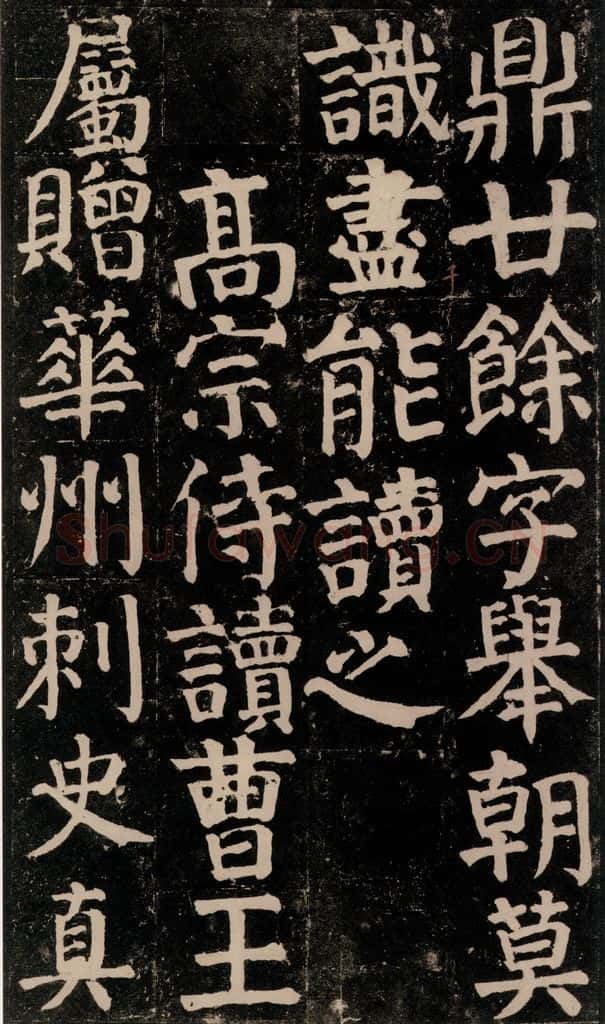 鼎廿餘字舉朝莫
識盡能讀之
髙宗侍讀曹王
屬贈華州刺史真
shufawang.CN